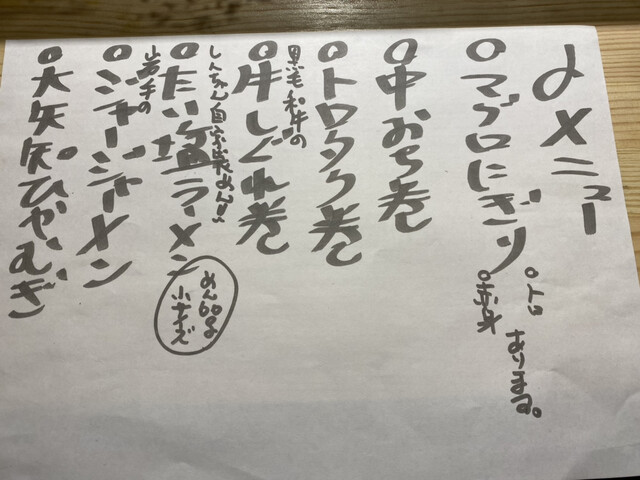 〆メニュー
○マグロにぎり
○トロ
○赤身
あります。
○中おち巻
○トロタク巻
黒毛和牛の
○牛しぐれ巻
しんちゃん自家製めん!!
○たい塩ラーメン
めん60g
小サイズ
岩手の
○ジャージャーメン
○大矢知ひやむぎ